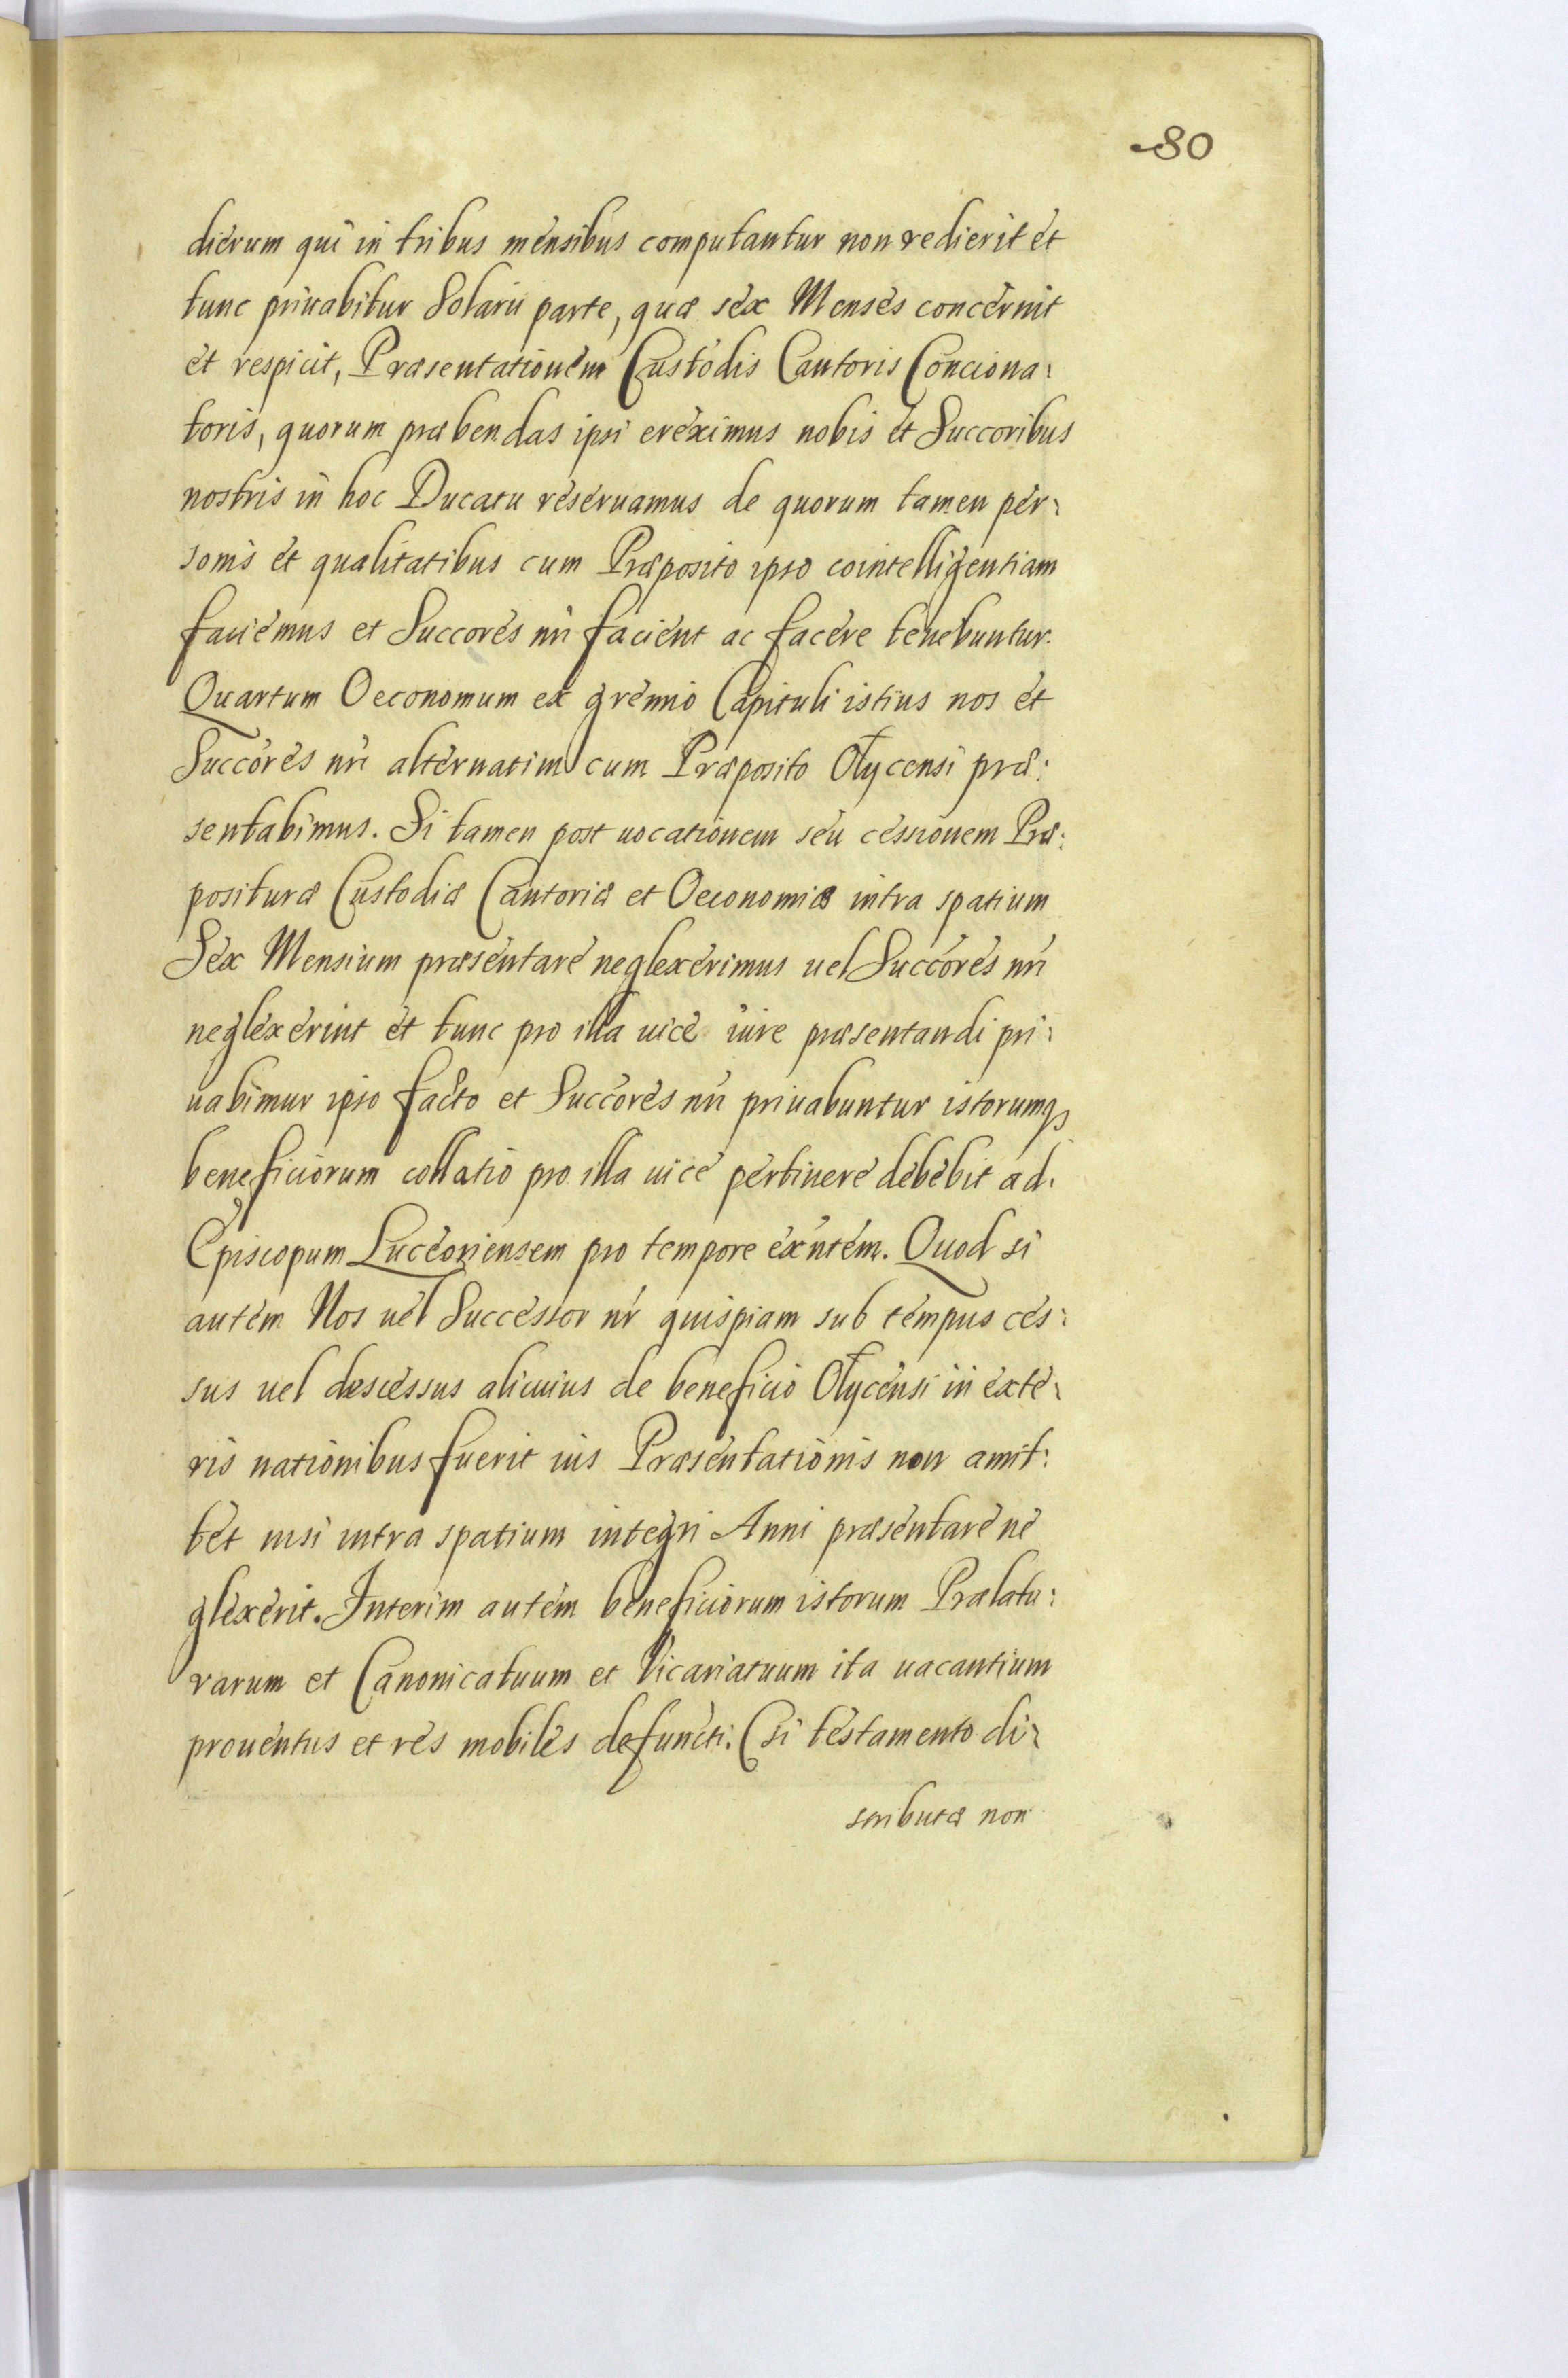 80
dierum qui in tribus mensibus computantur non redierit et
tunc priuabitur Solarii parte, quæ sex Menses concernit
et respicit, Præsentationem Custodis Cantoris Conciona:
toris, quorum præbendas ipsi ereximus nobis et Succoribus
nostris in hoc Ducatu reseruamus de quorum tamen per:
sonis et qualitatibus cum Præposito ipso cointelligentiam
faciemus et Succores nri facient ac facere tenebuntur.
Quartum Oeconomum ex gremio Capituli istius nos et
Succores nri alternatim cum Præposito Olycensi præ:
sentabimus. Si tamen post uocationem seu cessionem Præ:
posituræ Custodiæ Cantoriæ et Oeconomiæ intra spatium
Sex Mensium præsentare neglexerimus uel Succores nri
neglexerint et tunc pro illa uice iure præsentandi pri:
uabimur ipso facto et Succores nri priuabuntur istorumq3
beneficiorum collatio pro illa uice pertinere debebit ad.
Episcopum Luceoriensem pro tempore exntem. Quod si
autem Nos uel Successor nr quispiam sub tempus ces:
sus uel descessus alicuius de beneficio Olycensi in exte:
ris nationibus fuerit ius Præsentationis non amit:
tet nisi intra spatium integri Anni præsentare ne
glexerit. Interim autem beneficiorum istorum Prælatu:
rarum et Canonicatuum et Vicariatuum ita uacantium
prouentus et res mobiles defuncti. (si testamento di:
stributæ non